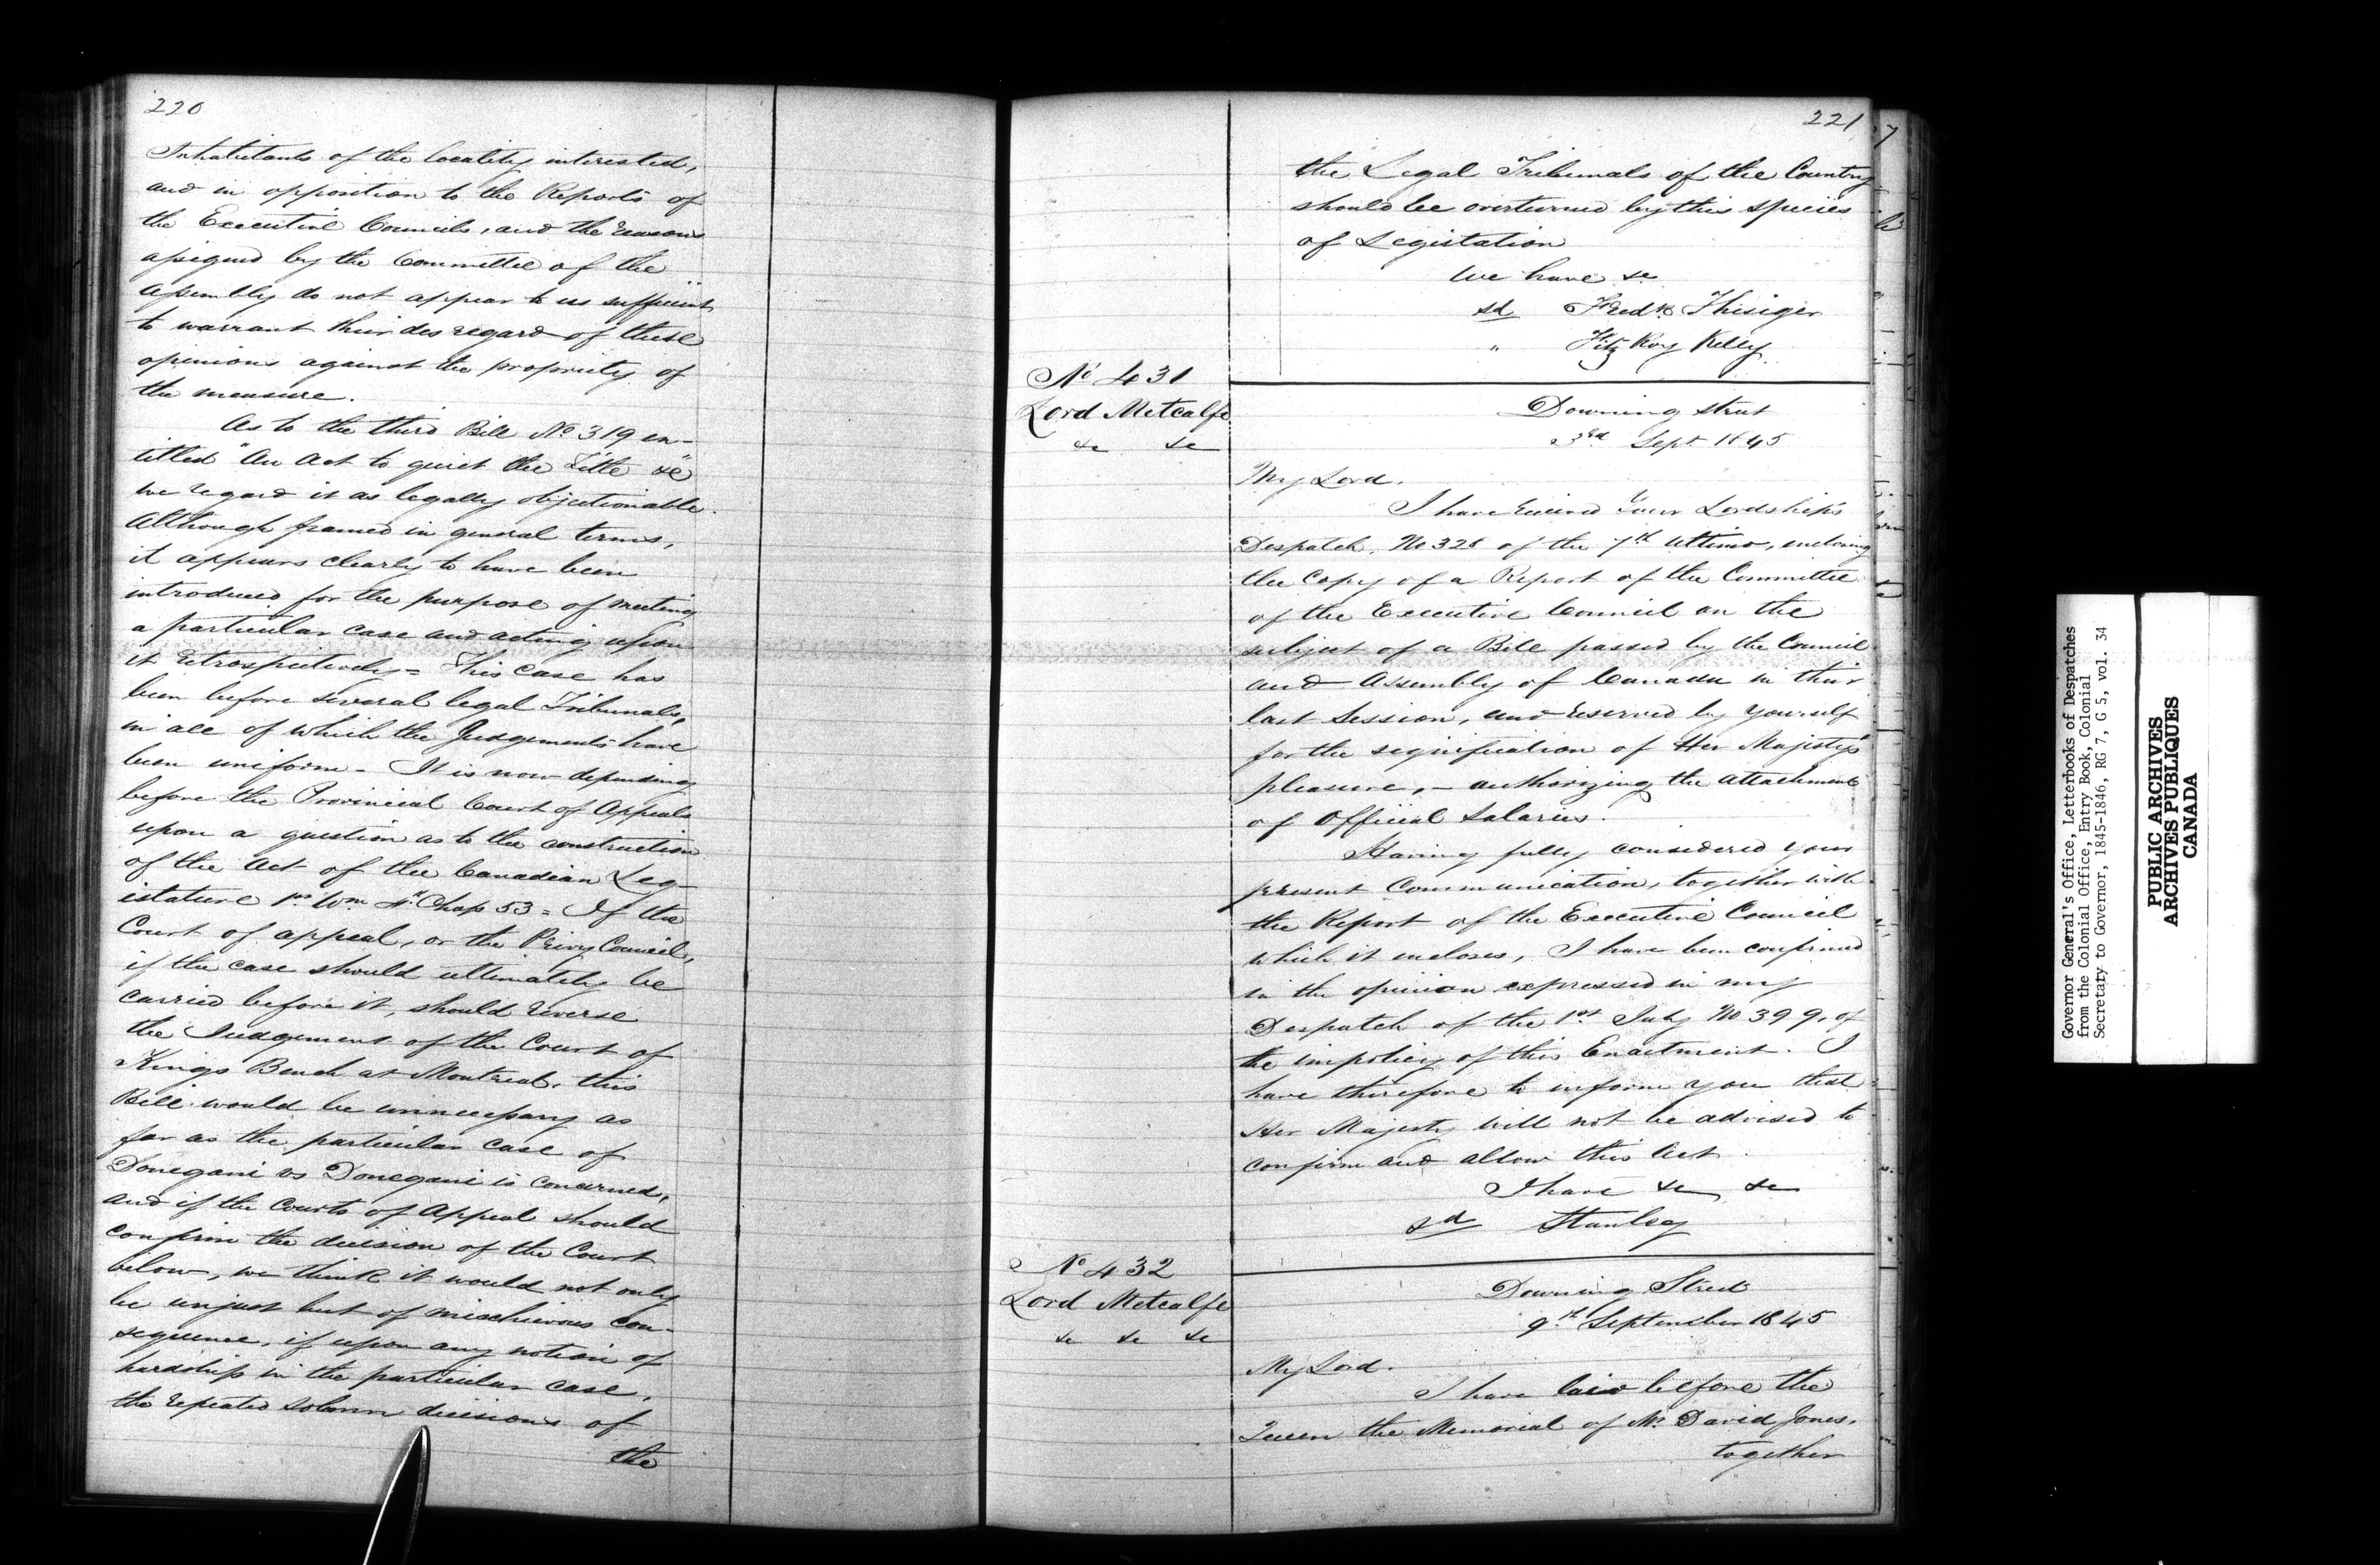 220
Inhabitants of the locality interested,
and in opposition to the Reports of
the Executive Councils, and the reasons
assigned by the Committee of the
Assembly do not appear to us sufficient
to warrant their disregard of these
opinions against the propriety of
the measure.
As to the third Bill No 319 en-
titled "An Act to quiet the Title &c"
we regard it as legally objectionable.
Although framed in general terms,
it appears clearly to have been
introduced for the purpose of meeting
a particular case and acting upon
it retrospectively = This case has
been before several legal Tribunals,
in all of which the Judgements have
been uniform - It is now depending
before the Provincial Court of Appeals
upon a question as to the construction
of the Act of the Canadian Leg-
islature 1st Wm 4th Chap 53 = If the
Court of appeal, or the Privy Council,
if the case should ultimately be
carried before it, should reverse
the Judgement of the Court of
Kings Bench at Montreal, this
Bill would be unnecessary as
far as the particular case of
Donegani vs Donegani is concerned,
and if the Courts of Appeal should
confirm the decision of the Court
below, we think it would not only
be unjust but of mischievous con-
sequence, if upon any notion of
hardship in the particular case,
the repeated solemn decisions of
the
221
the Legal Tribunals of the Country
should be overturned by this species
of Legislation
We have &c
sd Fredk Thesiger
" Fitz Roy Kelly
No 431
Lord Metcalfe
&c &c
Downing Street
3rd Sept 1845
My Lord.
I have received Your Lordship's
Despatch, No 328 of the 7th Ultimo, enclosing
the Copy of a Report of the Committee
of the Executive Council on the
subject of a Bill passed by the Council
and Assembly of Canada in their
last Session, and reserved by yourself
for the signification of Her Majesty's
pleasure, - authorizing the attachment
of Official Salaries.
Having fully considered your
present Communication, together with
the Report of the Executive Council
which it encloses, I have been confirmed
in the opinion expressed in my
Despatch of the 1st July No 399, of
the impolicy of this Enactment. I
have therefore to inform you that
Her Majesty will not be advised to
confirm and allow this Act.
I have &c &c
sd Stanley
No 432
Lord Metcalfe
&c &c &c
Downing Street
9th September 1845
My Lord.
I have laid before the
Queen the Memorial of Mr David Jones,
together
Governor General's Office, Letterbooks of Despatches
from the Colonial Office, Entry Book, Colonial
Secretary to Governor, 1845-1846, RG 7, G 5, vol. 34
PUBLIC ARCHIVES
ARCHIVES PUBLIQUES
CANADA